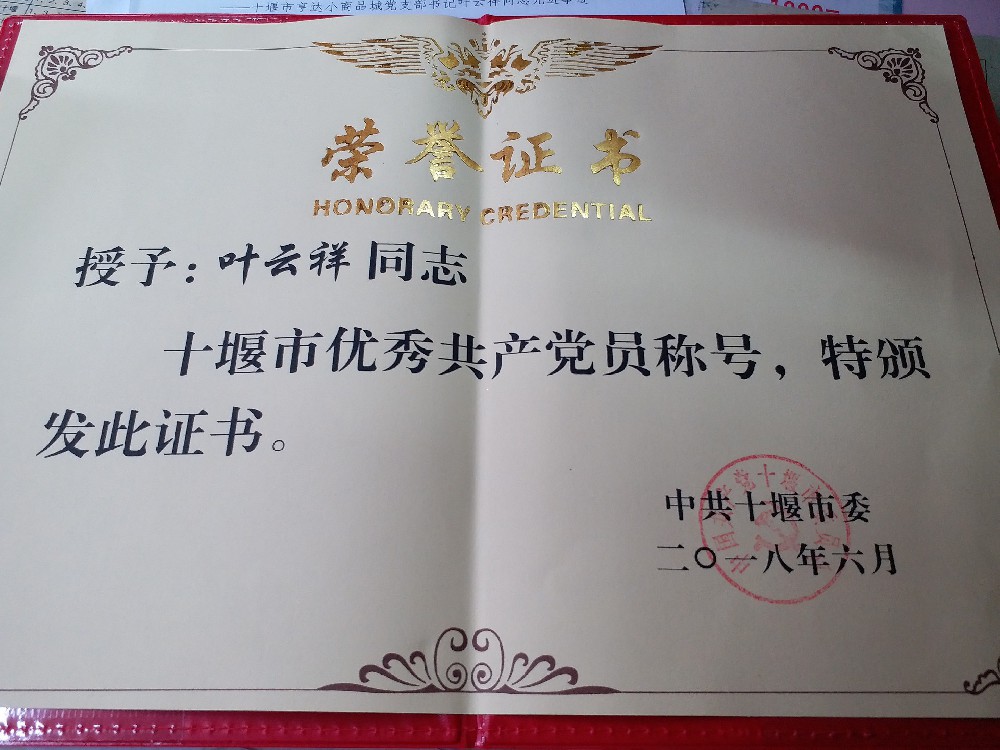 十堰市亨达小商品城党支部书记叶云祥同志
荣誉证书
HONORARY CREDENTIAL
授予：叶云祥同志
十堰市优秀共产党员称号，特颁
发此证书。
中共十堰市委
二〇一八年六月